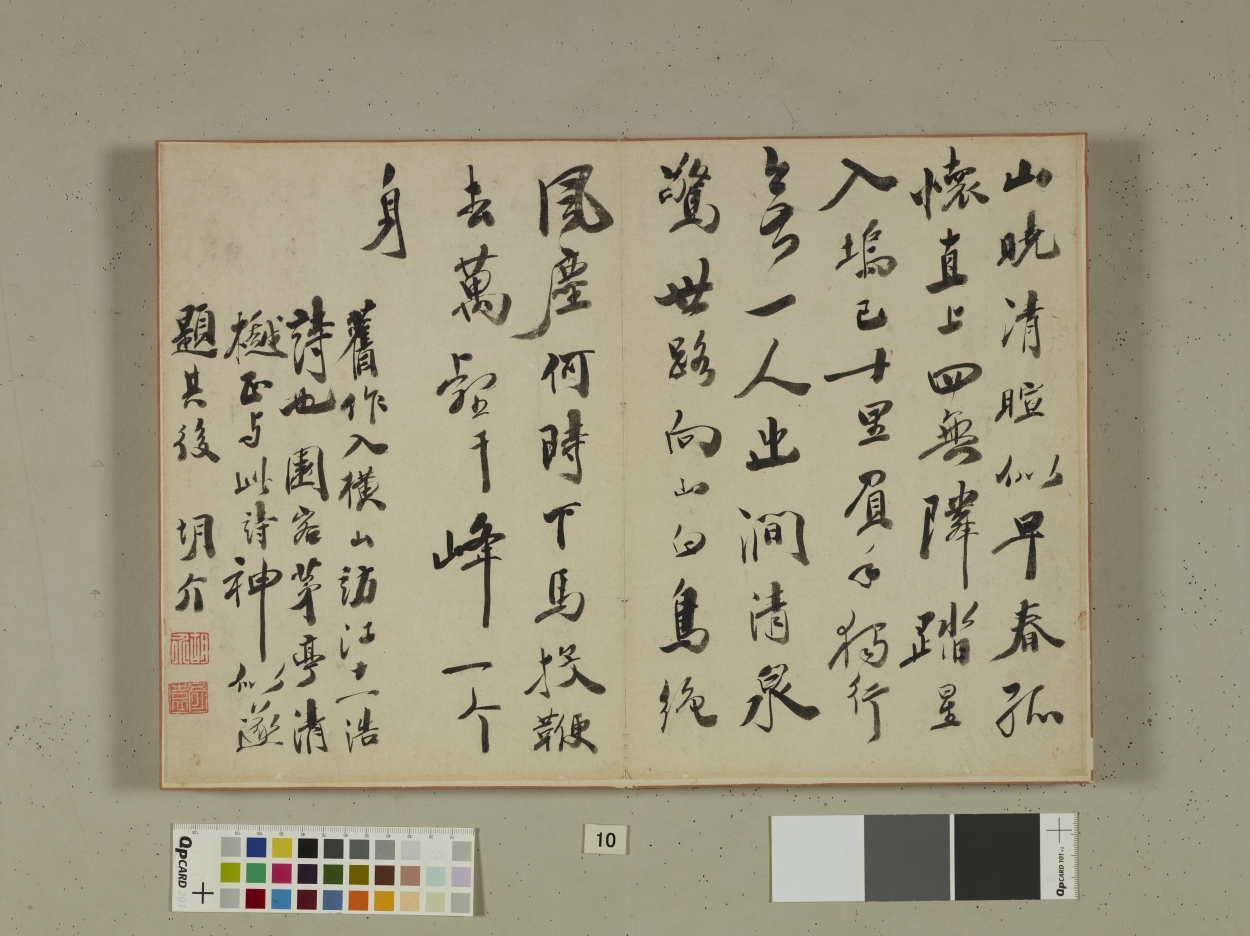 山曉清暄似早春孤
懷直上四無隣踏星
入塢已十里負手獨行
无一人出澗清泉
驚世路向山白鳥絶
風塵何時下馬投鞭
去萬壑千峰一个
身
舊作入横山訪江十一浩
詩也園客茅亭清
樾正与此詩神似遂
題其後 胡介
QPCARD
10
QPCARD 101